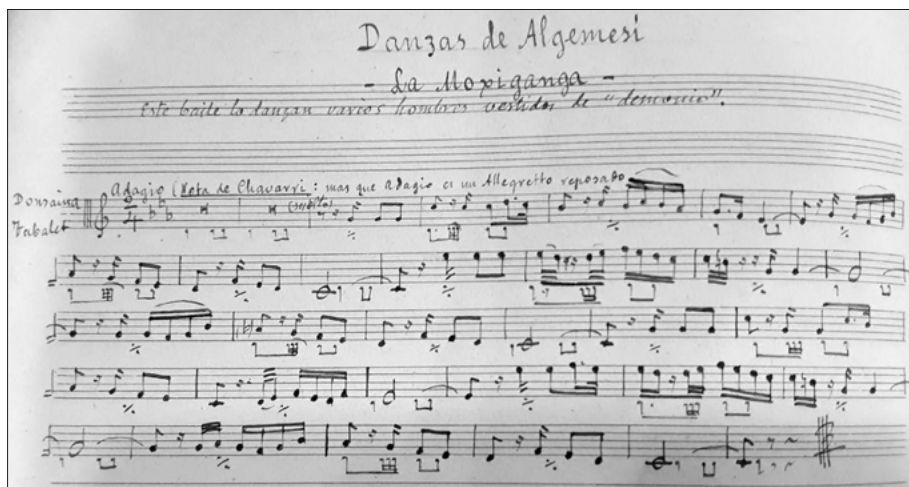 Danzas de Algemesi
- La Moxiganga -
Este baile lo danzan varios hombres vestidos de "demonio".
Adagio (Nota de Chavarri: mas que Adagio es un Allegretto reposado
Donsaina
Tabalet
2
4